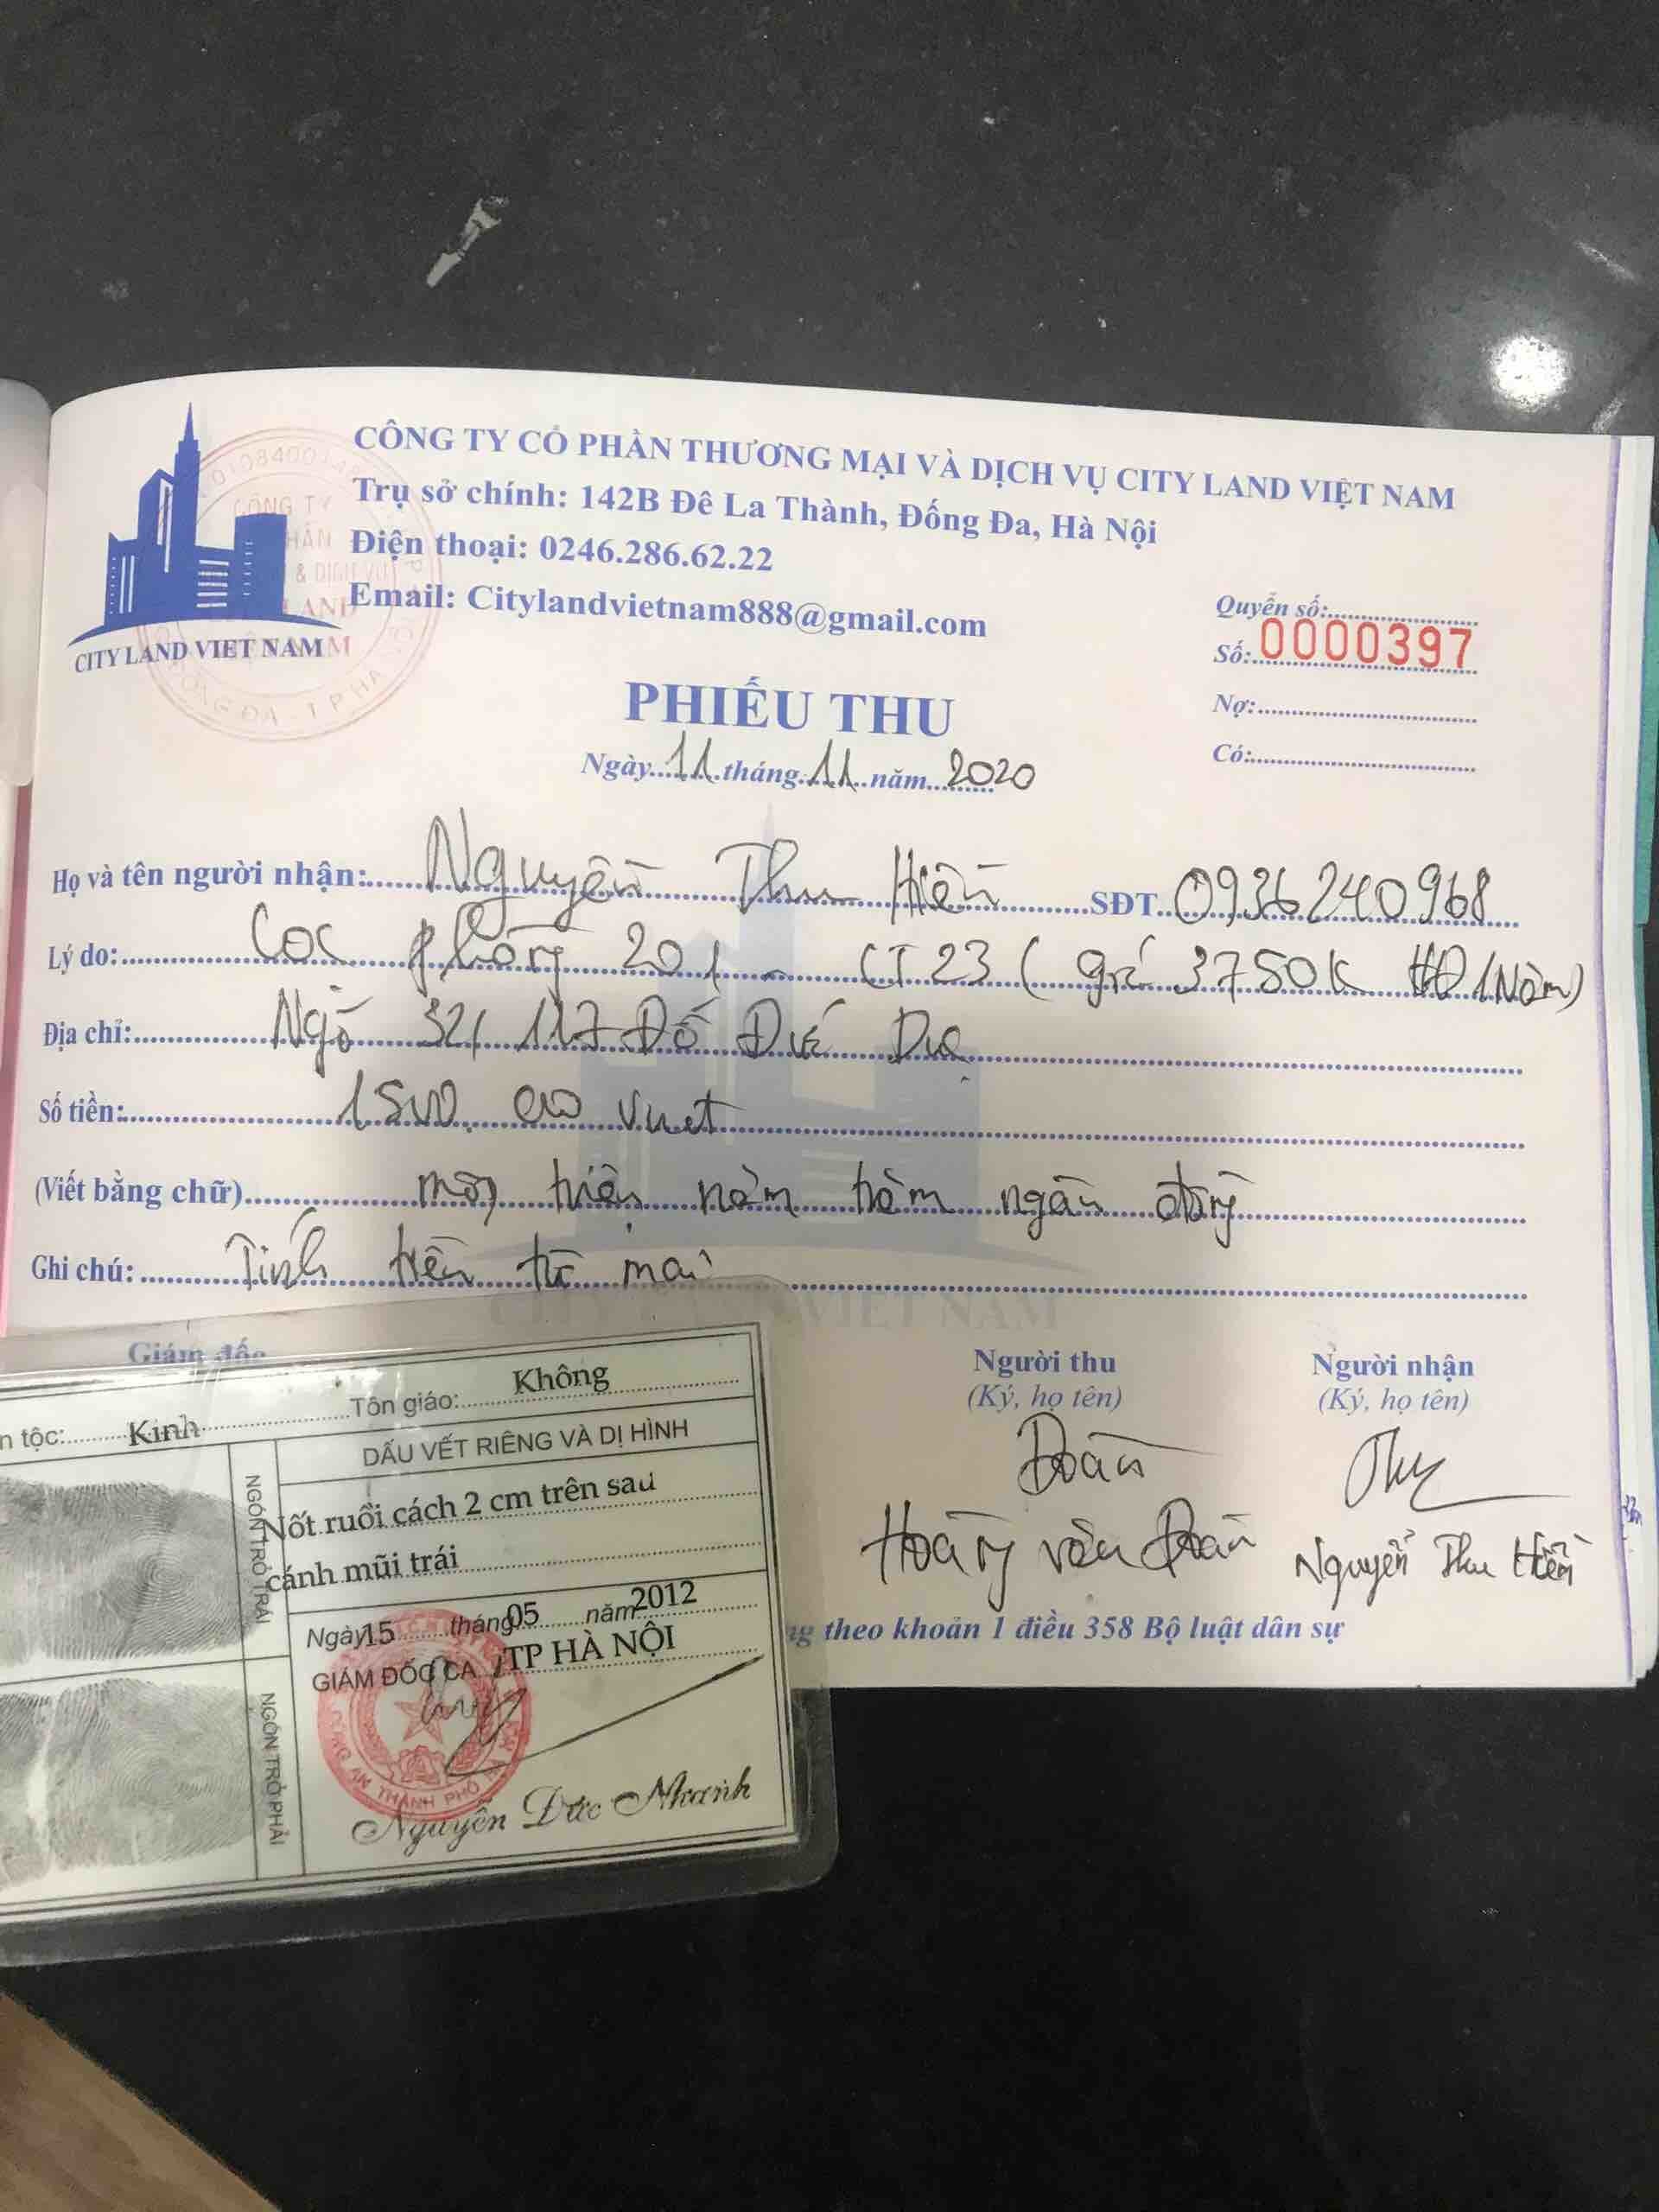 CÔNG TY CỔ PHẦN THƯƠNG MẠI VÀ DỊCH VỤ CITY LAND VIỆT NAM
Trụ sở chính: 142B Đê La Thành, Đống Đa, Hà Nội
Điện thoại: 0246.286.62.22
Email: Citylandvietnam888@gmail.com
CITY LAND VIET NAM
Quyển số:
Số: 0000397
Nợ:
Có:
PHIẾU THU
Ngày 11 tháng 11 năm 2020
Họ và tên người nhận: Nguyễn Thu Hiền SĐT 0936240968
Lý do: Cọc phòng 201 - CT 23 (giá 3750K HĐ 1 Năm)
Địa chỉ: Ngõ 32/117 Đỗ Đức Dục
Số tiền:
(Viết bằng chữ) một triệu năm trăm ngàn đồng
Ghi chú: Tính tiền từ mai
CITY LAND VIET NAM
Giám đốc
Người thu
(Ký, họ tên)
Người nhận
(Ký, họ tên)
Đoàn
Hoàng văn Đoàn
Nguyễn Thu Hiền
theo khoản 1 điều 358 Bộ luật dân sự
n tộc: Kinh Tôn giáo: Không
DẤU VẾT RIÊNG VÀ DỊ HÌNH
NGÓN TRỎ TRÁI
Nốt ruồi cách 2 cm trên sau
cánh mũi trái
Ngày 15 tháng 05 năm 2012
GIÁM ĐỐC CA TP HÀ NỘI
NGÓN TRỎ PHẢI
Nguyễn Đức Nhanh